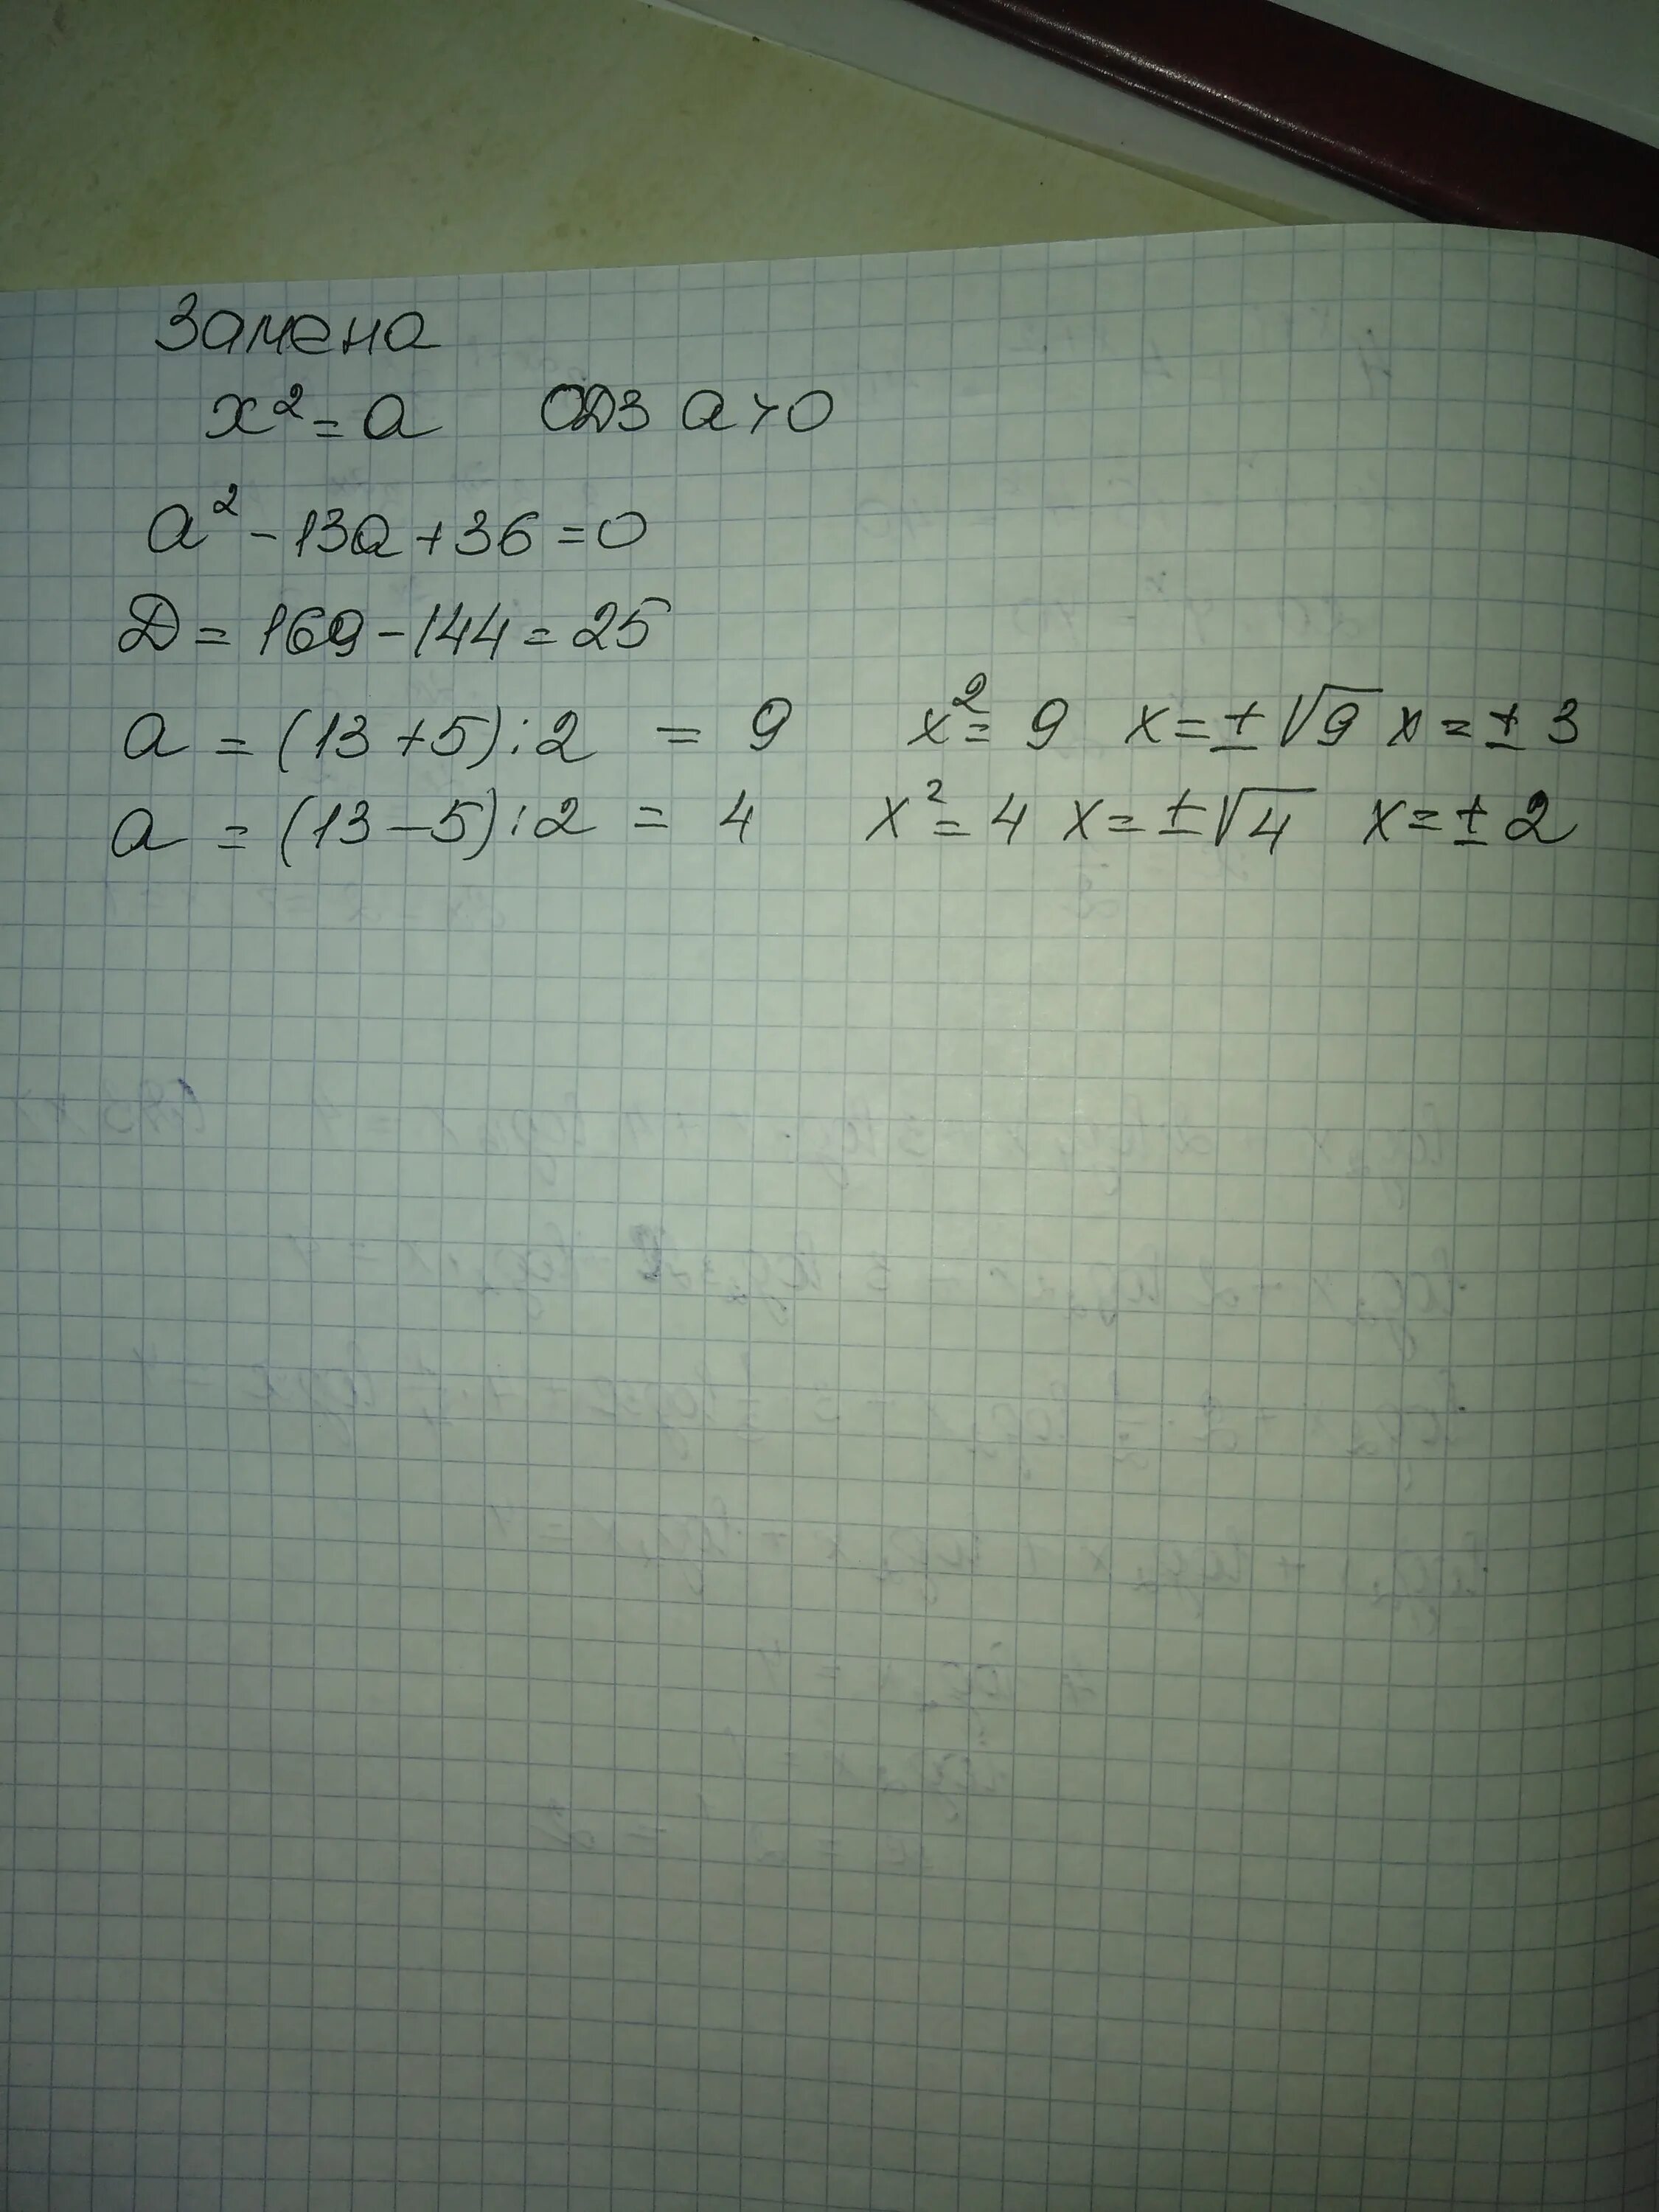 Замена
x² = a ОДЗ a > 0
a² - 13a + 36 = 0
Д = 169 - 144 = 25
a = (13 + 5) : 2 = 9 x² = 9 x = ± √9 x = ± 3
a = (13 - 5) : 2 = 4 x² = 4 x = ± √4 x = ± 2